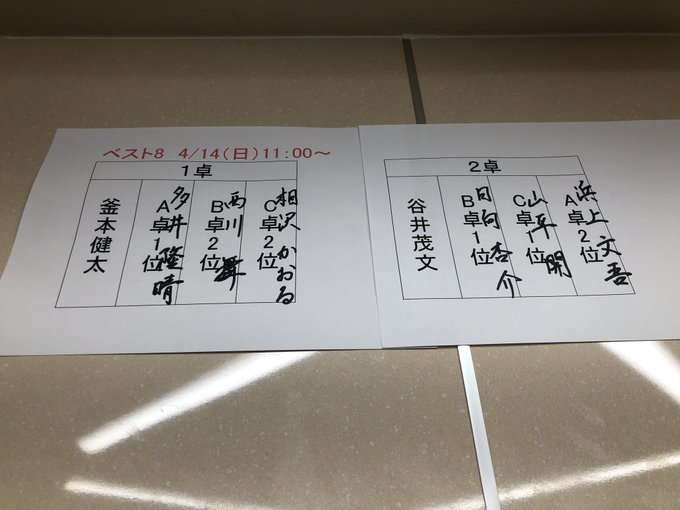 ベスト8 4/14(日)11:00～
1卓
釜本健太
A卓1位
多井隆晴
B卓2位
西川舞
C卓2位
相沢かおる
2卓
谷井茂文
B卓1位
日向杏介
C卓1位
山平開
A卓2位
浜上文吾